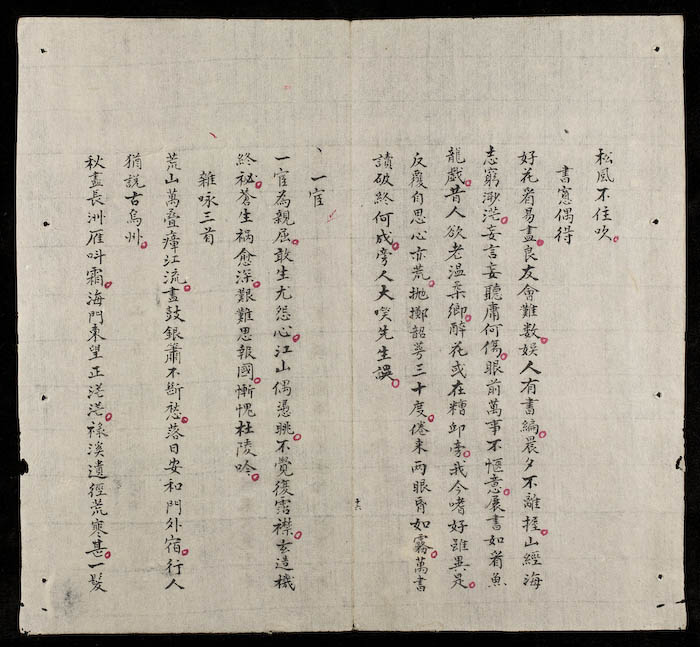 松風不住吹
書窗偶得
好花看易盡良友會難數娛人有書編晨夕不離挃山經海
志窮渺茫妄言妄聽庸何傷眼前萬事不愜意展書如看魚
龍戲昔人欲老溫柔鄉醉花或在糟邱旁我今嗜好雖異是
反覆自思心亦荒拋擲韶華三十度倦來兩眼昏如霧萬書
讀破終何成旁人大𥬇先生誤
一官
一官為親屈敢生尤怨心江山偶憑眺不覺復霑襟玄造機
終祕蒼生禍愈深艱難思報國慚愧杜陵吟
雜咏三首
荒山萬疊瘴江流畫鼓銀簫不斷愁落日安和門外宿行人
猶說古烏州
秋盡長洲雁呌霜海門東望正茫茫祿溪遺徑荒寒甚一髮